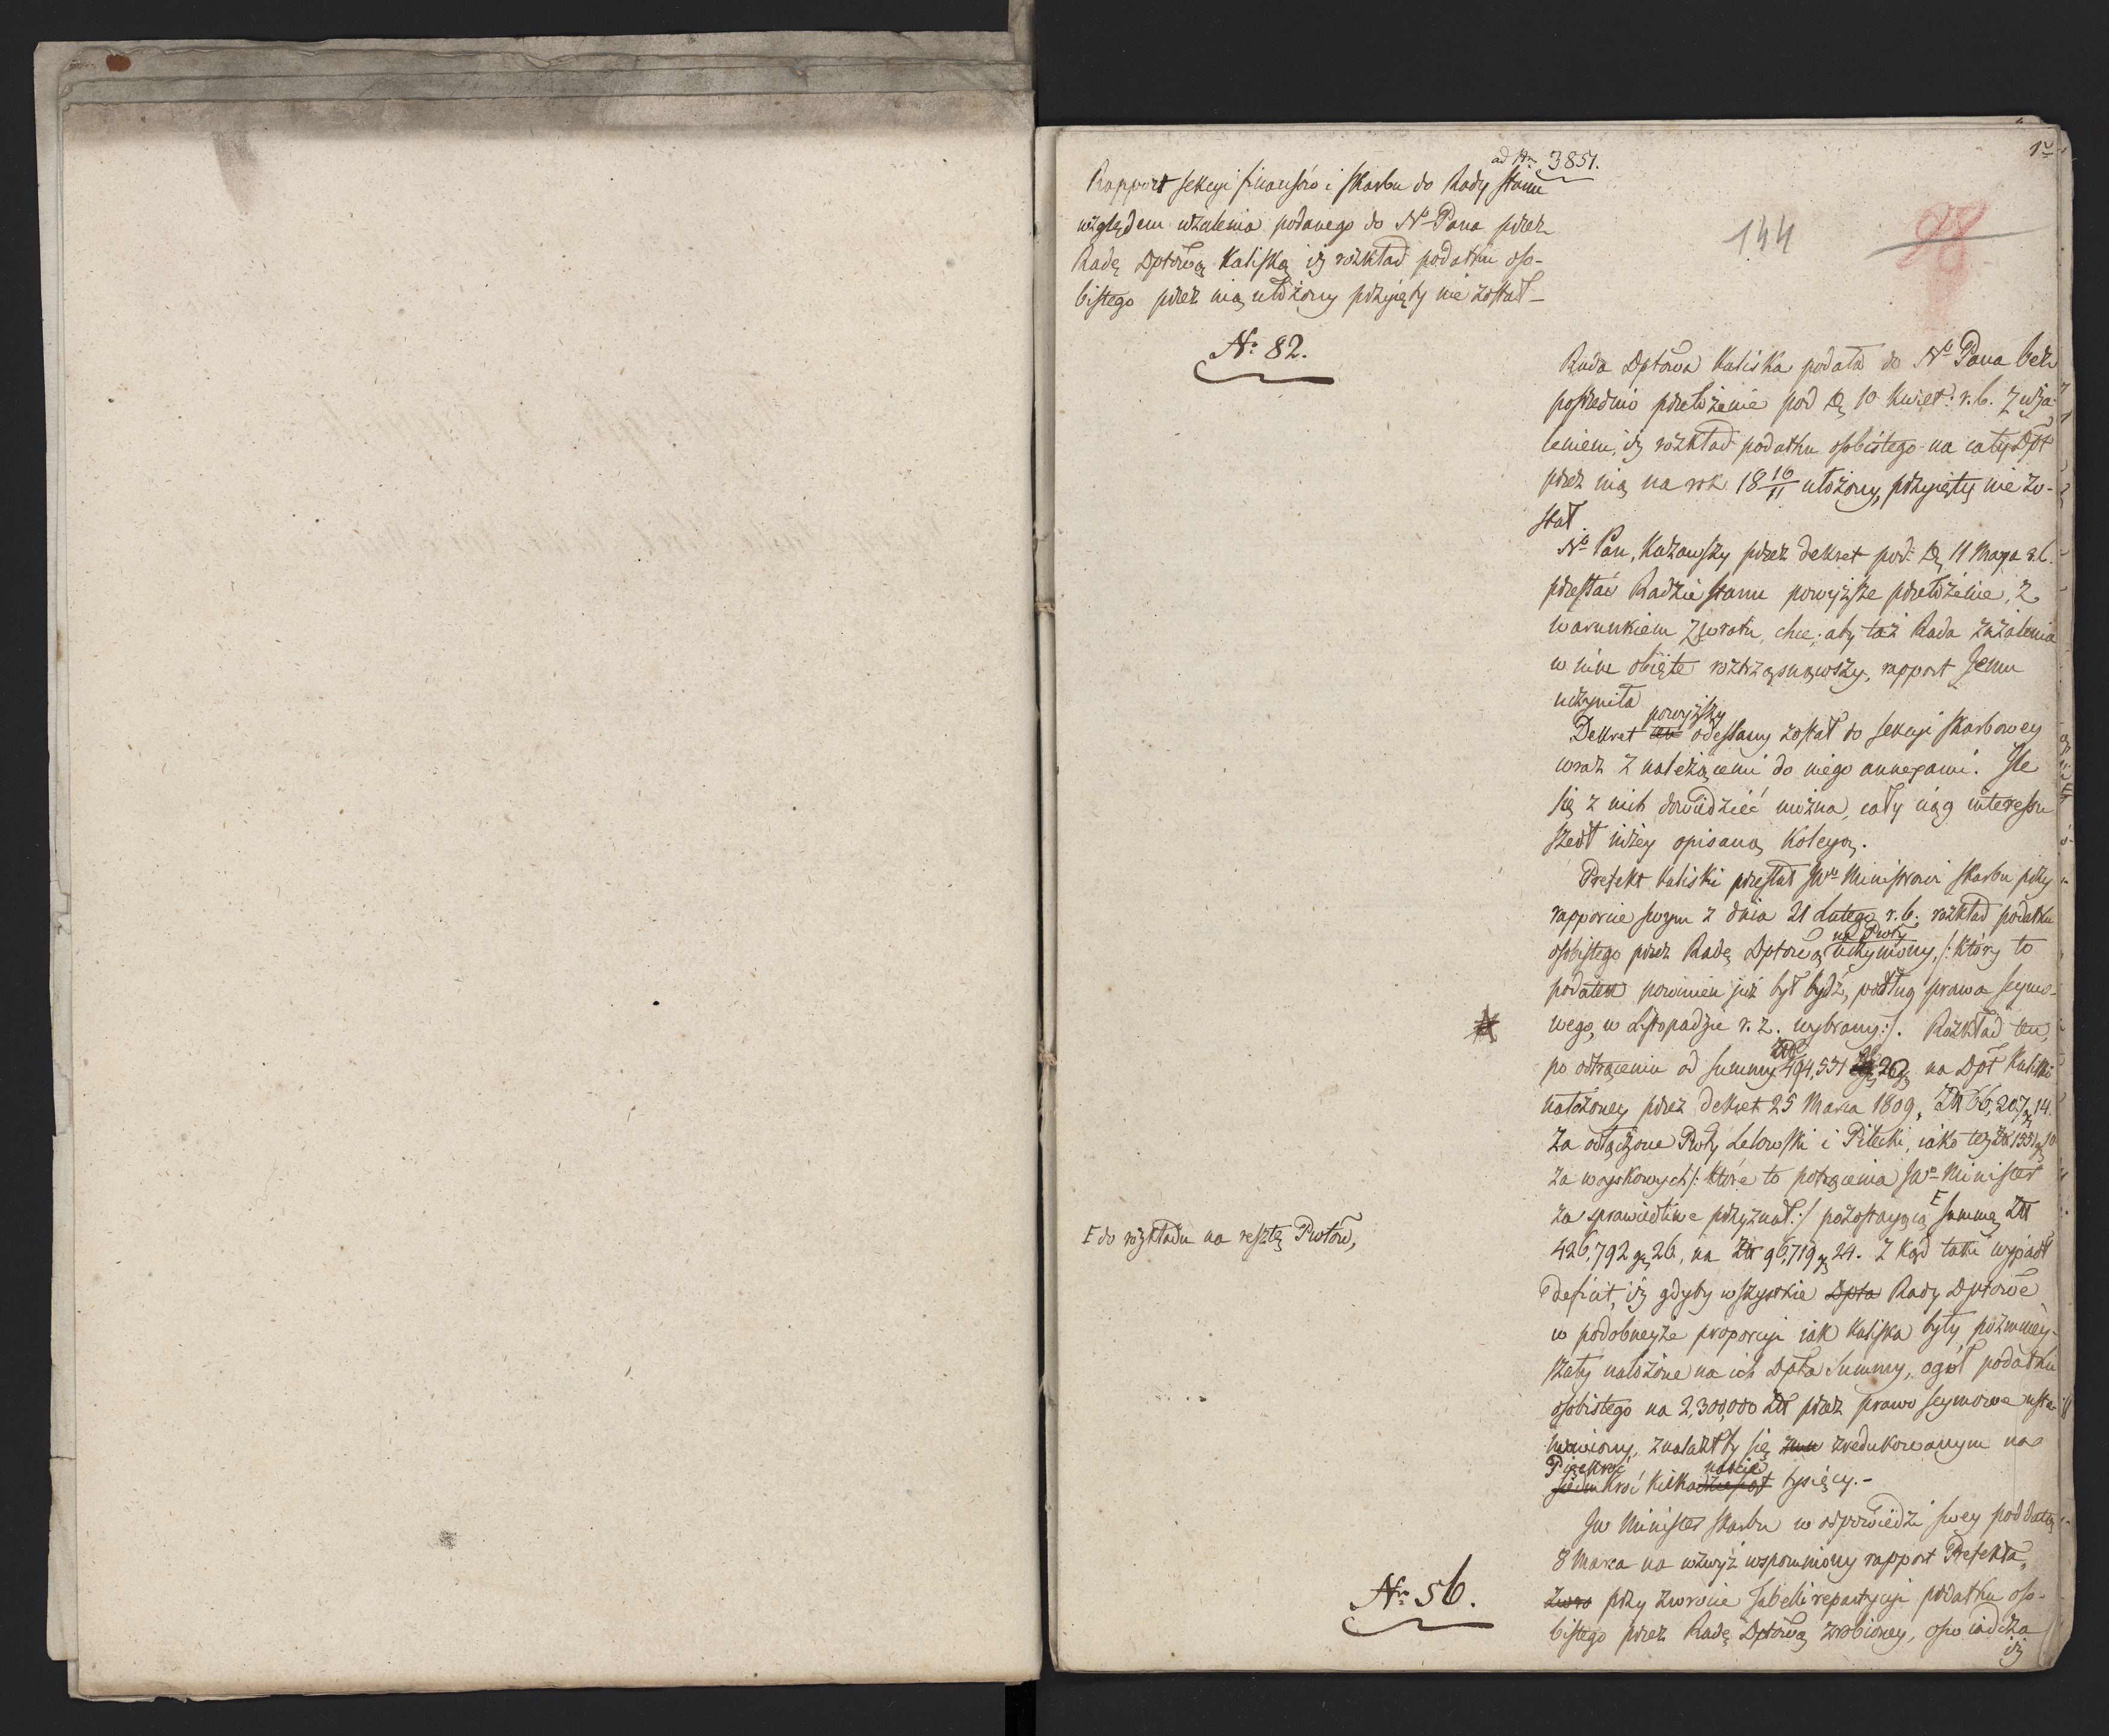 ad Nr 3851.
1.
Rapport sekcyi finansów i skarbu do Rady stanu
względem użalenia podanego do No Pana przez
Radę Dptową Kaliską iż rozkład podatku oso-
bistego przez nią ułożony przyięty nie został -
No 82.
144
98
Rada Dptowa Kaliska podała do No Pana bez
pośrednio przełożenie pod d. 10 Kwiet: r. b. z uża-
leniem, iż rozkład podatku osobistego na cały Dpt
przez nią na rok 18 10/11 ułożony, przyięty nie zo-
stał.
No Pan, kazawszy przez dekret pod d. 11 Maja r. b.
przesłać Radzie stanu powyższe przełożenie, z
warunkiem zwrotu, chce, aby taż Rada zażalenia
w nim obięte roztrząsnąwszy, rapport Jemu
uczyniła
Dekret powyższy odesłany został do sekcyi skarbowey
wraz z należącemi do niego annexami. Ile
się z nich dowiedzieć można, cały ciąg interessu
szedł niżey opisaną koleyą.
Prefekt Kaliski przesłał JWo Ministrowi skarbu przy
rapporcie swym z dnia 21 Lutego r. b. rozkład podatku
osobistego przez Radę Dptową na Pwty uczyniony, /: który to
podatek powinien już był bydź, podług prawa seymo-
wego, w Listopadzie r. z. wybrany :/. Rozkład ten,
po odtrąceniu od summy Złł 494,531 gr 20 na Dpt Kaliski
nałożoney przez dekret 25 Marca 1809, Złł 66,207 gr 14.
za odłączone Pwty Lelowski i Pilecki, iako też Złł 1551 gr 10
za woyskowych /: które to potrącenia JWo Minister
za sprawiedliwe przyznał :/ pozostaiącą E summę Złł
E do rozkładu na resztę Pwtów,
426,792 gr 26, na Złł 96,719 gr 24. Zkąd taki wypadł
deficit, iż gdyby wszystkie Dpta Rady Dptowe
w podobneyże proporcyi iak Kaliska były pozmniey-
szały nałożone na ich Dpta Summy, ogół podatku
osobistego na 2,300,000 Złł przez prawo seymowe usta-
nowiony, znalazłby się zredukowanym na
Pięćkroć kilkanaście tysięcy. -
JW Minister skarbu w odpowiedzi swey pod datą
8 Marca na wzwyż wspomniony rapport Prefekta,
No 56.
zwro przy zwrocie Tabelli repartycyi podatku oso-
bistego przez Radę Dptową zrobioney, oświadcza
iż